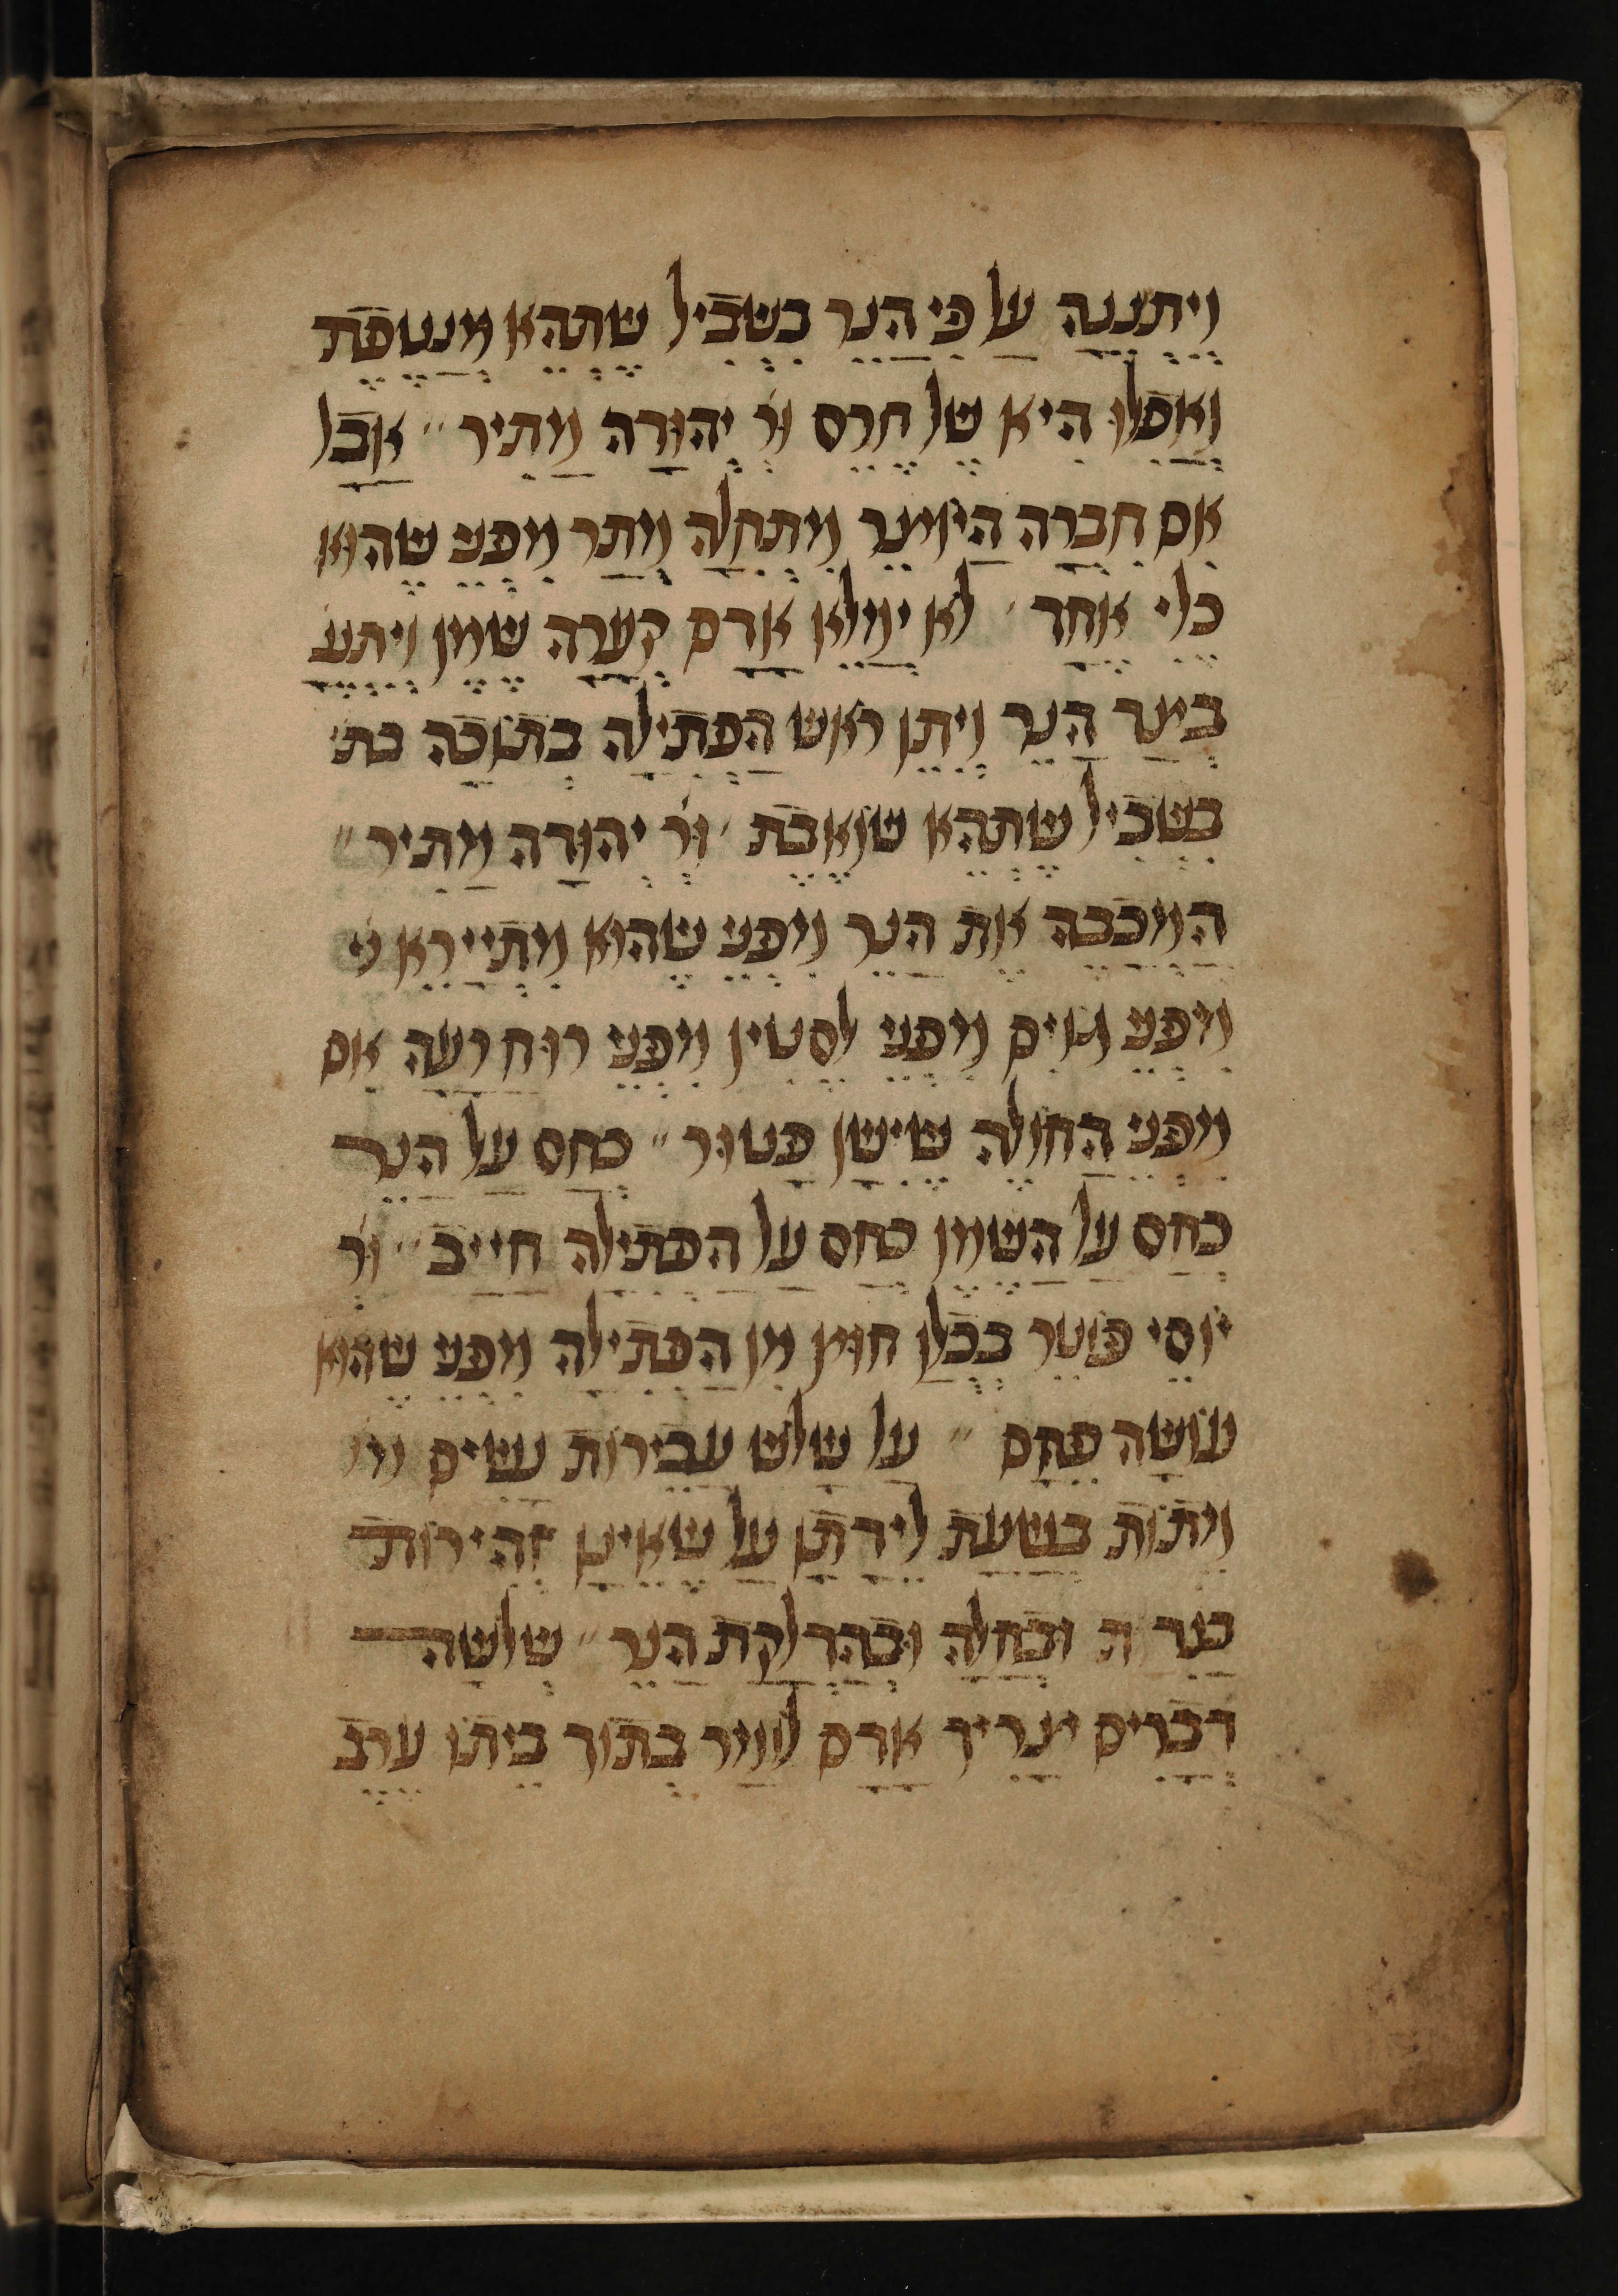 ויתננה על פי הנר בשביל שתהא מנטפת
ואפלו היא של חרס ור יהודה מתיר ״ אבל
אם חברה היוצר מתחלה מתר מפני שהוא
כלי אחד ׳ לא ימלא אדם קערה שמן ויתננ
בצד הנר ויתן ראש הפתילה בתוכה בת׳
בשביל שתהא שואבת ׳ ור׳ יהודה מתיר ״
המכבה את הנר מפני שהוא מתיירא
מפני גוים מפני לסטין מפני רוח רעה אם
מפני החולה שישן פטור ״ כחס על הנר
כחס על השמן כחס על הפתילה חייב ״ ור
יוסי פוטר בכלן חוץ מן הפתילה מפני שהוא
עושה פחם ״ על שלש עבירות נשים
מתות בשעת לידתן על שאינן זהירות
בנדה ובחלה ובהדלקת הנר ״ שלשה
דברים צריך אדם לומר בתוך ביתו ערב